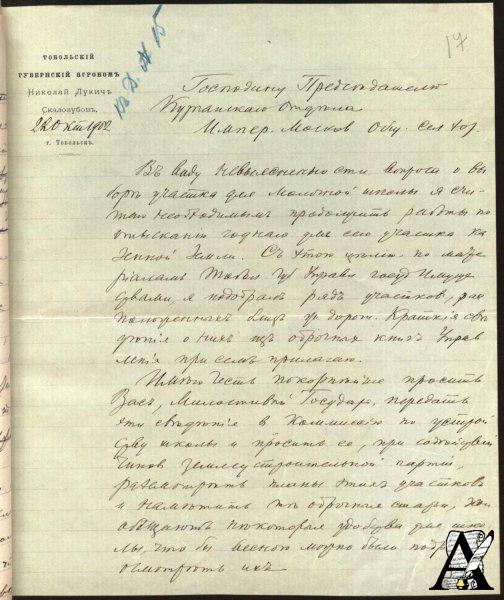 17
ТОБОЛЬСКІЙ
ГУБЕРНСКІЙ АГРОНОМЪ
Николай Лукичъ
Скалозубовъ,
22 Окт 1902
г. Тобольскъ.
Господину Предсѣдателю
Курганскаго Отдѣла
Импер. Москов Общ. Сел Хоз.
Въ виду невыясненности вопроса о вы
борѣ участка для молочной школы я счи
таю необходимымъ продолжить работы по
отысканію годнаго для сего участка ка
зенной земли. Съ этой цѣлью по мате
ріаламъ Тобол Управ госуд Имуще
ствами, я подобралъ рядъ участковъ, рас
положенныхъ близъ дороги. Краткія свѣ
дѣнія о нихъ изъ оброчныхъ книгъ Управ
ленія при семъ прилагаю.
Имѣю честь покорнѣйше просить
Васъ, Милостивый Государь, передать
эти свѣдѣнія в Коммисію по устрой
ству школы и просить ее, при содѣйствіи
чиновъ землеустроительной партіи,
разсмотрѣть планы этихъ участковъ
и намѣтить тѣ оброчныя статьи, кои
обѣщаютъ некоторыя удобства для шко
лы, что бы весною можно было
осмотрѣть ихъ